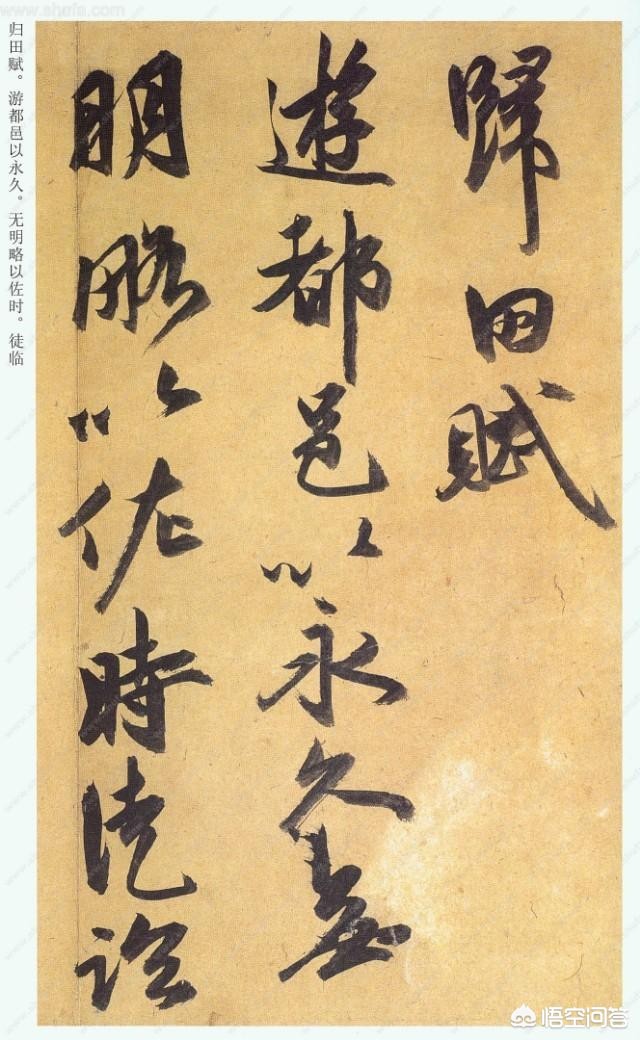 www.shufa.com
归田赋。游都邑以永久。无明略以佐时。徒临
歸田賦
遊都邑以永久無
明略以佐時徒臨
悟空问答